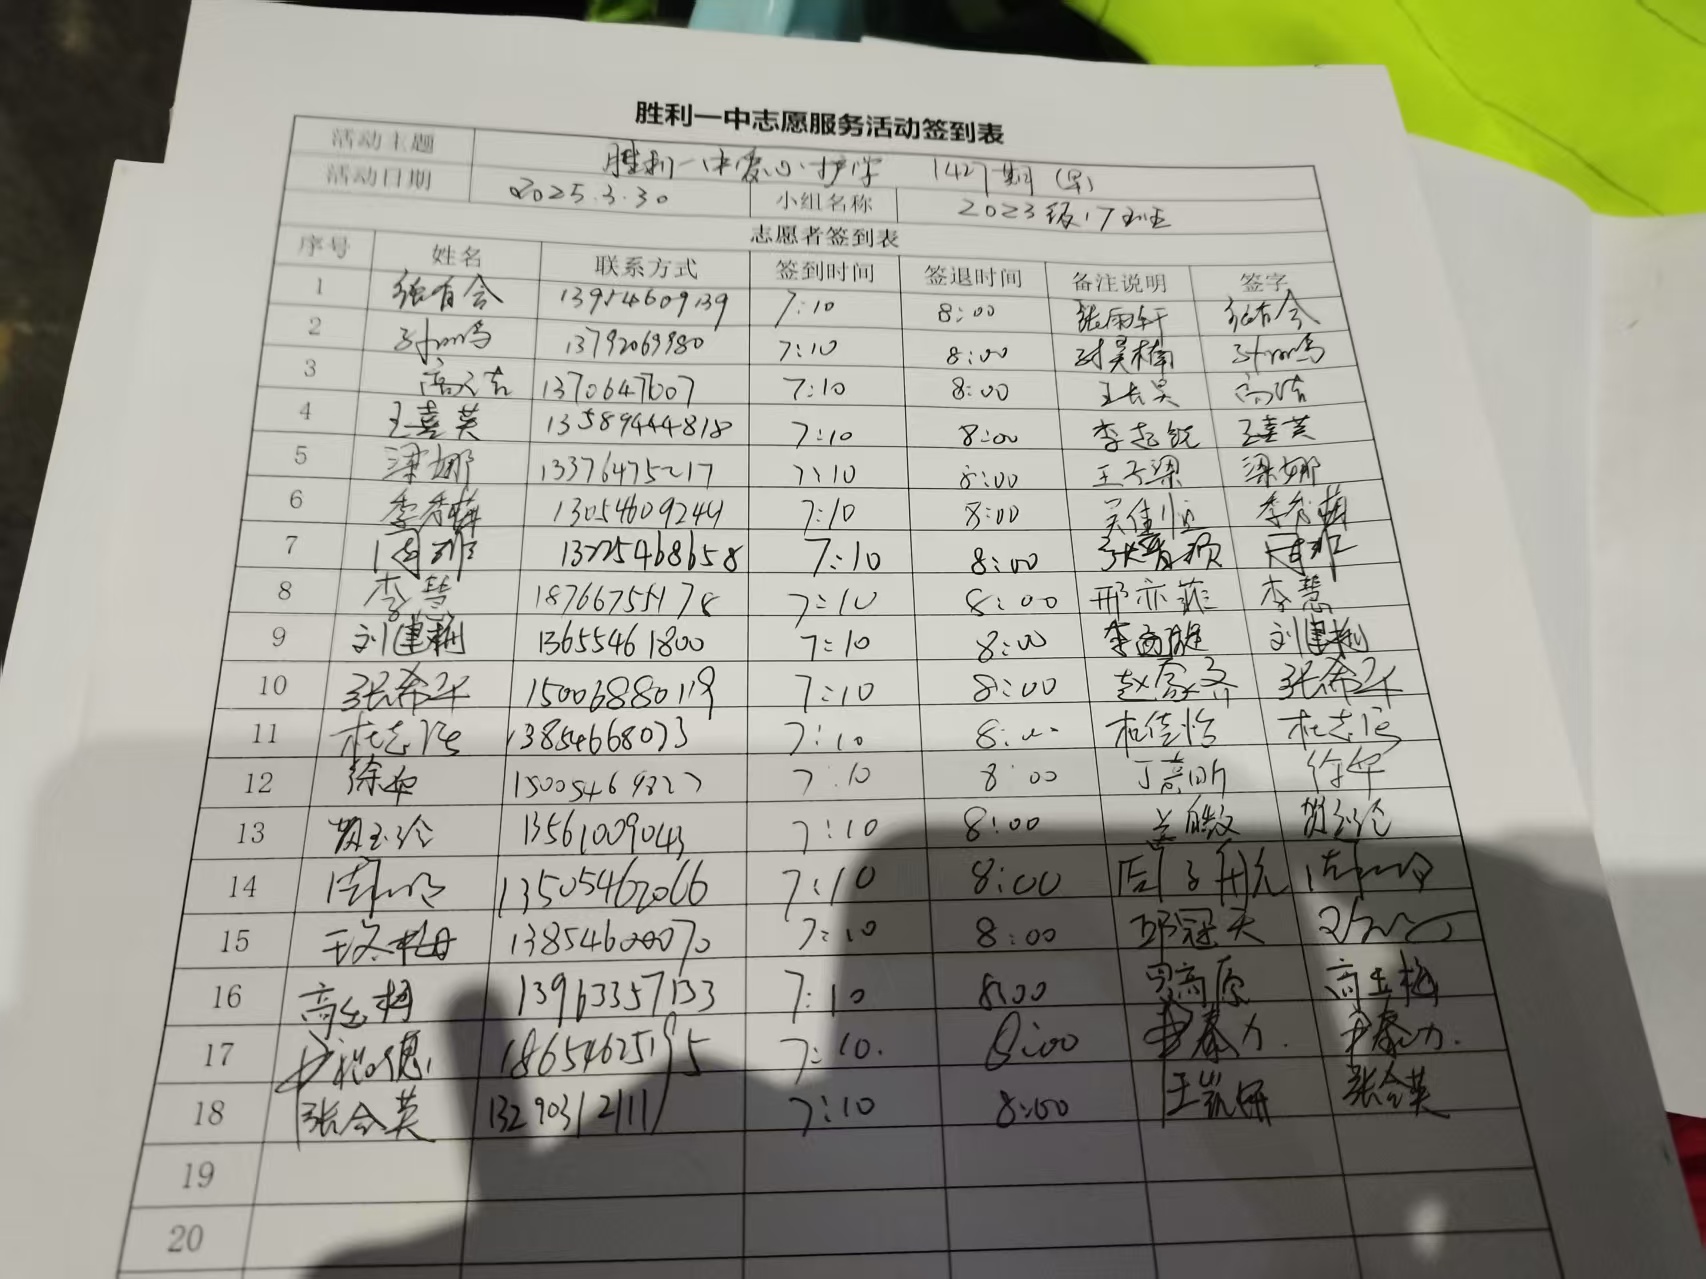 胜利一中志愿服务活动签到表
活动主题 胜利一中爱心护学 1427期(早)
活动日期 2025.3.30 小组名称 2023级17班
志愿者签到表
序号 姓名 联系方式 签到时间 签退时间 备注说明 签字
1 张有会 13954609139 7:10 8:00 张雨轩 张有会
2 13792069980 7:10 8:00
3 7:10 8:00 王长昊
4 王嘉英 13589444818 7:10 8:00 李起锐 王嘉英
5 梁娜 13376475217 7:10 8:00 王子梁 梁娜
6 李秀梅 13054609244 7:10 8:00 吴佳恒 李秀梅
7 13725468658 7:10 8:00
8 李慧 18766755178 7:10 8:00 邢亦菲 李慧
9 刘建梅 13655461800 7:10 8:00 刘建梅
10 张希华 15006880119 7:10 8:00 张希华
11 杜志强 13854668073 7:10 8:00 杜佳怡 杜志强
12 徐华 15005469327 7:10 8:00 丁意昕 徐华
13 13561009043 7:10 8:00
14 13505462066 7:10 8:00
15 13854600070 7:10 8:00 邱冠天
16 高玉梅 13963357133 7:10 8:00 高原 高玉梅
17 7:10. 8:00 春力. 春力.
18 张会英 13290312111 7:10 8:00 王凯妍 张会英
19
20